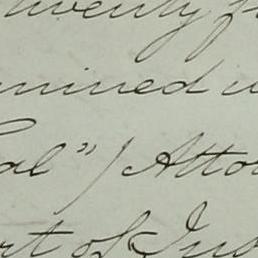 twenty f
mined w
al" / Atto
rt of Ind